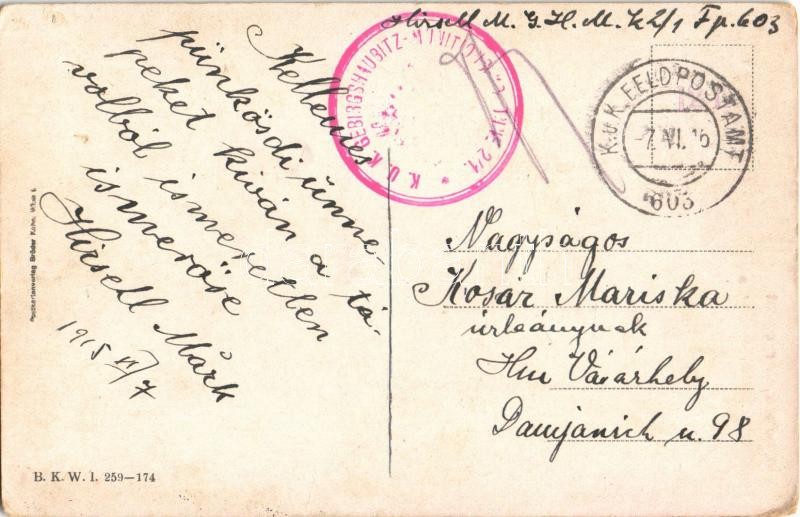 Hirsell M. G. H. M. K 2/1 Fp. 603
K. U. K. GEBIRGSHAUBITZ-MUNITIONS 2/1
K.u.K. FELDPOSTAMT
-7.VI.15
603
Kellemes
pünkösdi ünne-
peket kíván a tá-
volból ismeretlen
ismerőse
Hirsell Márk
1915 VI/7
Nagyságos
Kosár Mariska
úrleánynak
Hm Vásárhely
Damjanich u. 98
Postkartenverlag Brüder Kohn, Wien I.
B. K. W. I. 259—174